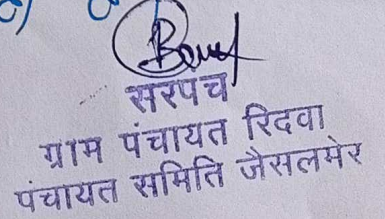 सरपच
ग्राम पंचायत रिदवा
पंचायत समिति जैसलमेर